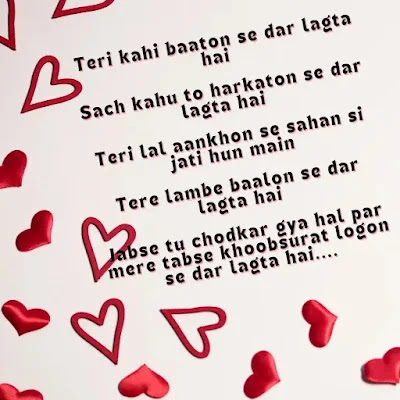 Teri kahi baaton se dar lagta
hai
Sach kahu to harkaton se dar
lagta hai
Teri lal aankhon se sahan si
jati hun main
Tere lambe baalon se dar
lagta hai
Jabse tu chodkar gya hal par
mere tabse khoobsurat logon
se dar lagta hai....